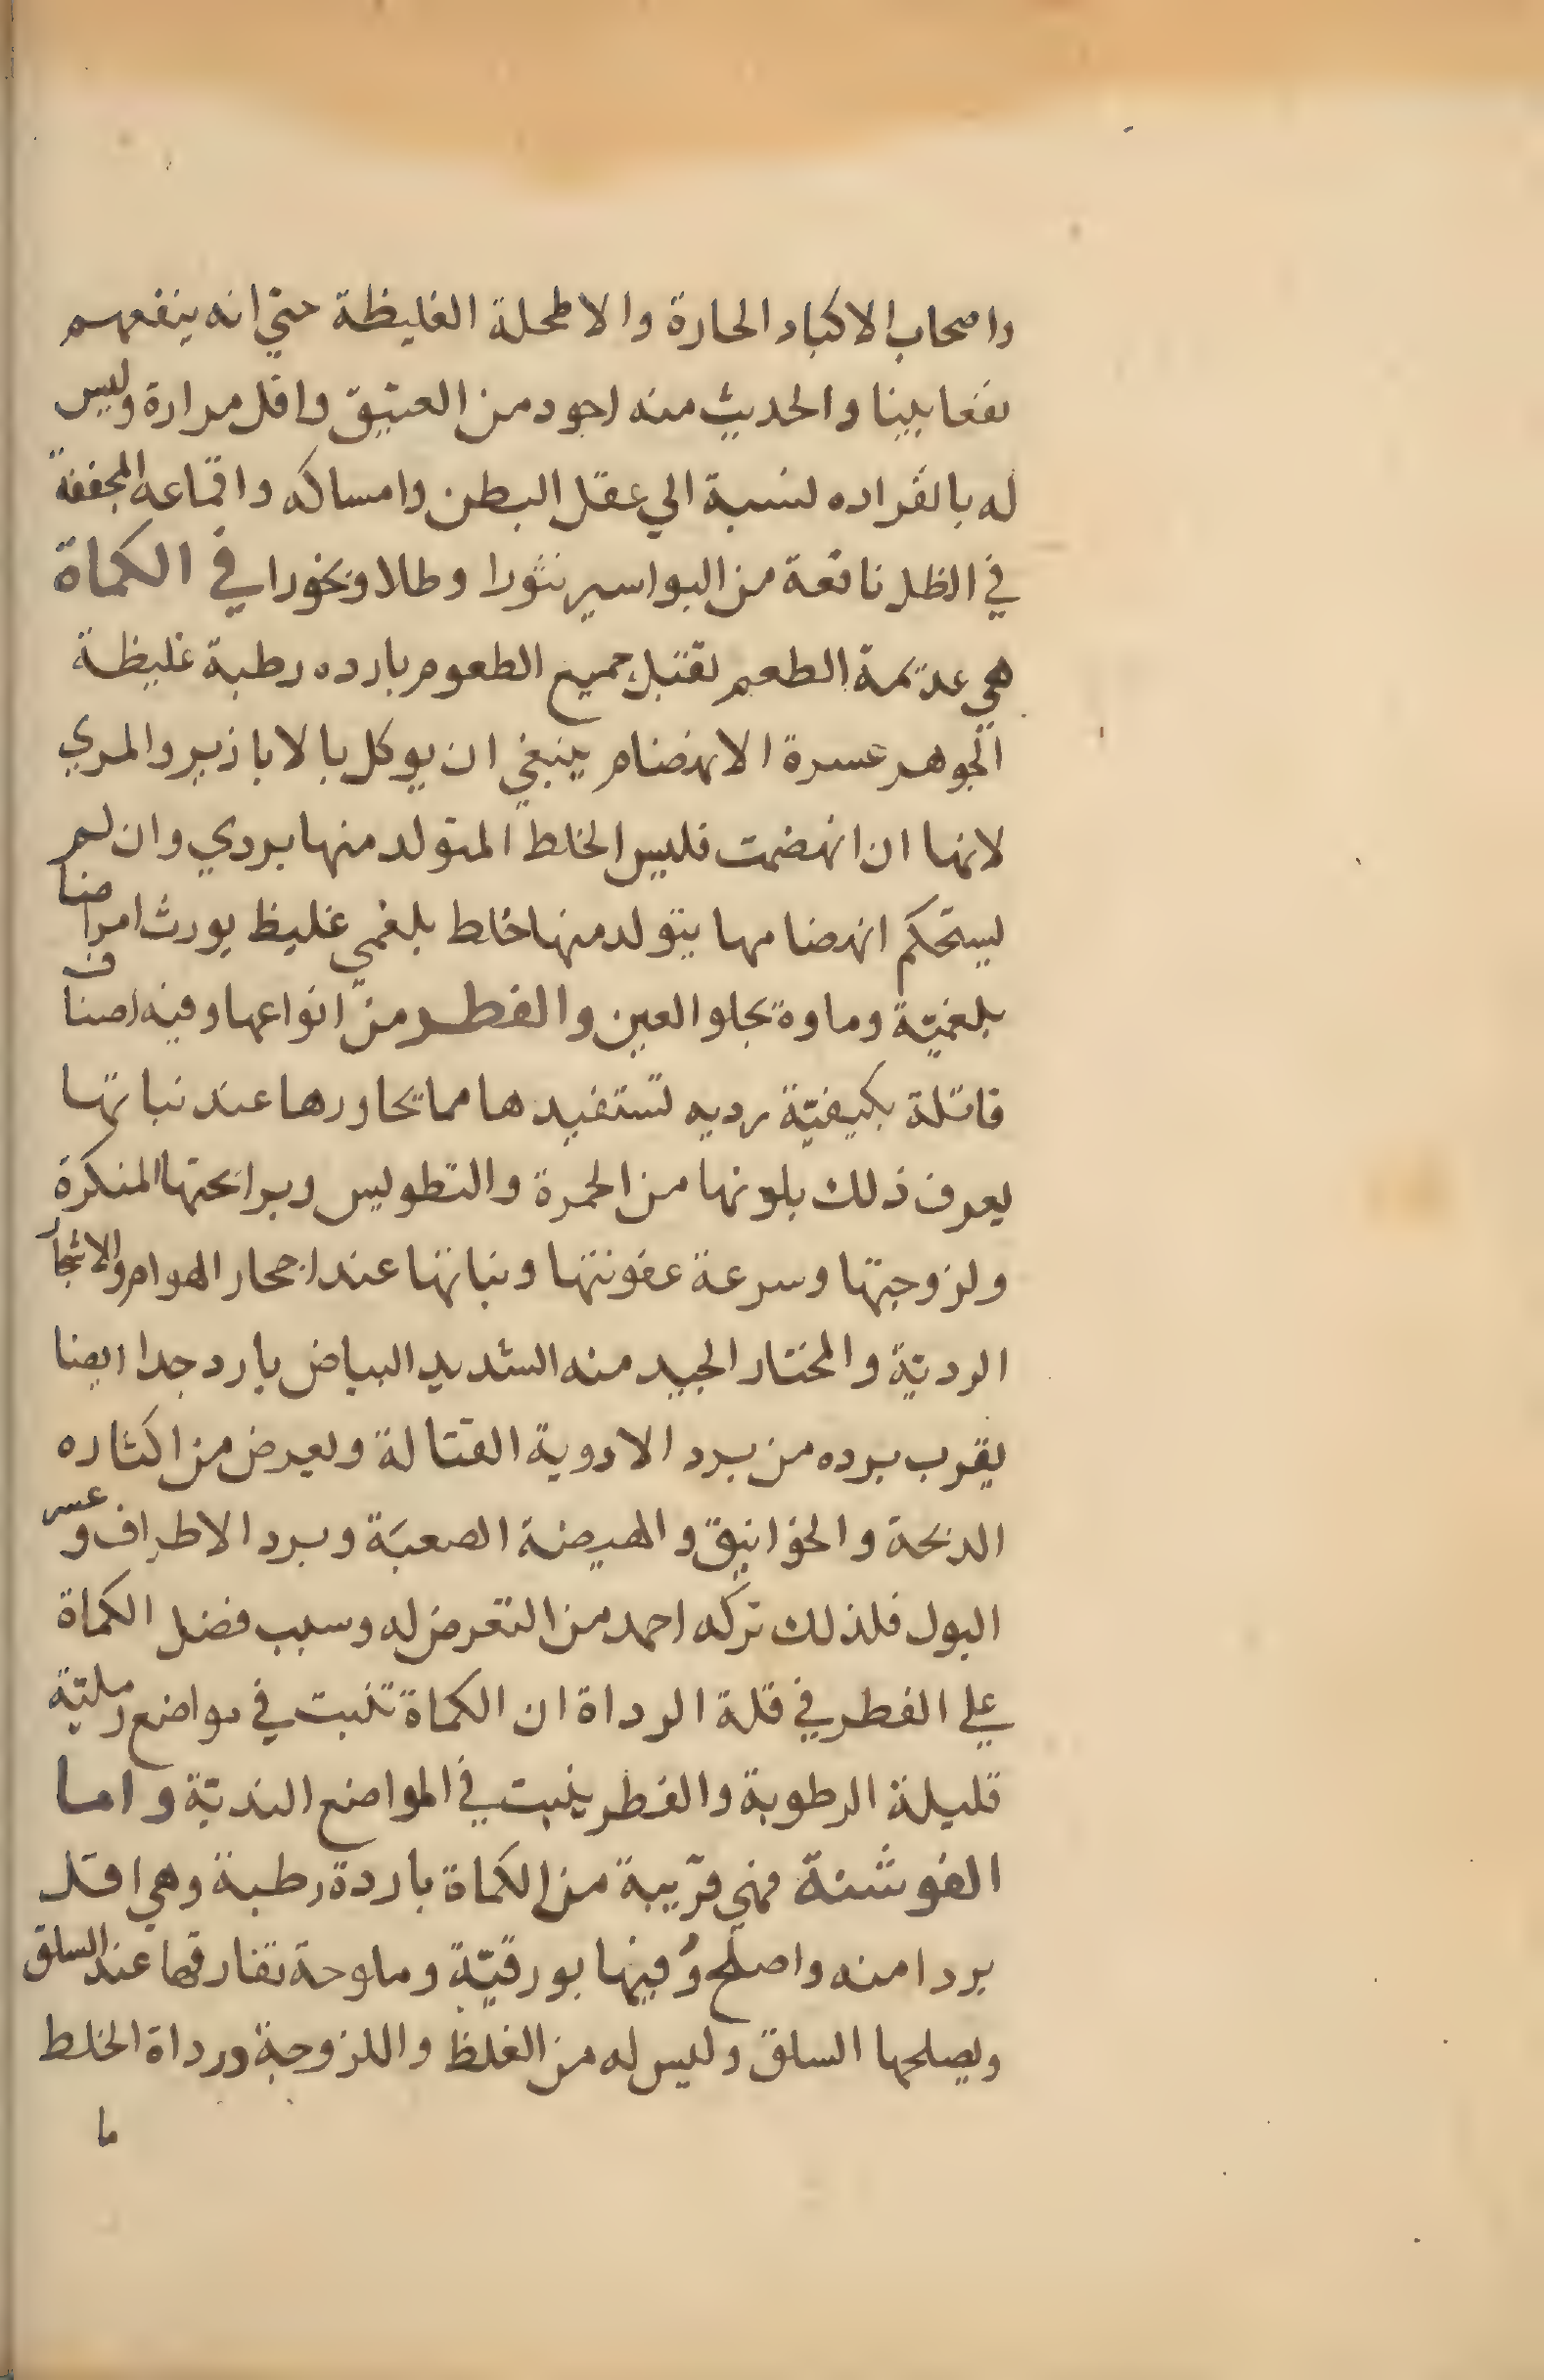 واصحاب الاكباد الحارة والاطحلة الغليظة حتي انه ينفعهم
نفعا بينا والحديث منه اجود من العتيق واقل مرارة وليس
له بانفراده نسبة الي عقل البطن وامساكه واقماعه المجففة
في الظل نافعة من البواسير نثورا وطلا وبخورا في الكماة
هي عديمة الطعم تقتبل جميع الطعوم بارده رطبة غليظة
الجوهر عسرة الانهضام ينبغي ان يوكل بالابازير والمري
لانها ان انهضمت فليس الخلط المتولد منها بردي وان لم
يستحكم انهضامها يتولد منها خلط بلغمي غليظ يورث امراضا
بلغمية وماوة يجلو العين والفطر من انواعها وفيه اصناف
قاتلة بكيفية رديه تستفيدها مما يجاورها عند نباتها
يعرف ذلك بلونها من الحمرة والتطويس وبرائحتها المنكرة
ولزوجتها وسرعة عفونتها ونباتها عند اجحار الهوام والاشجار
الردية والمختار الجيد منه الشديد البياض بارد جدا ايضا
يقرب برده من برد الادوية القتالة ويعرض من اكثاره
الذبحة والخوانيق والهيضة الصعبة وبرد الاطراف وعسر
البول فلذلك تركه احمد من التعرض له وسبب فضل الكماة
علي الفطر في قلة الرداة ان الكماة تنبت في مواضع رملية
قليلة الرطوبة والفطر ينبت في المواضع الندية واما
الغوشنة فهي قريبة من الكماة باردة رطبة وهي اقل
بردا منه واصلح وفيها بورقية وملوحة تفارقها عند السلق
ويصلحها السلق وليس له من الغلظ واللزوجة ورداة الخلط
ما